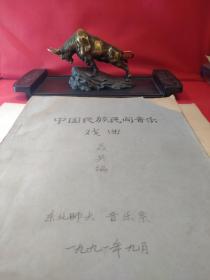 中国民族民间音乐
戏曲
编
东北师大 音乐系
一九九一年九月